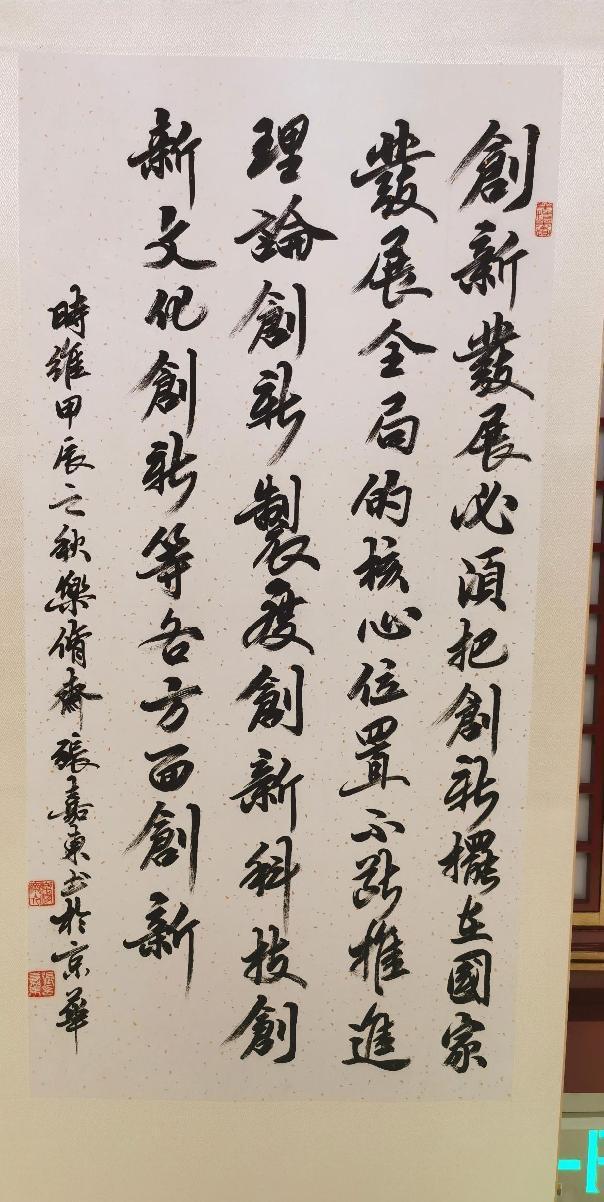 創新發展必須把創新擺在國家
發展全局的核心位置不斷推進
理論創新製度創新科技創
新文化創新等各方面創新
時維甲辰之秋樂脩齋張嘉東书於京華